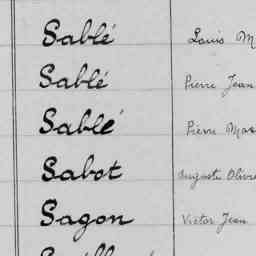 Sablé Louis M
Sablé Pierre Jean
Sablé Pierre Mar
Sabot Auguste Olivie
Sagon Victor Jean